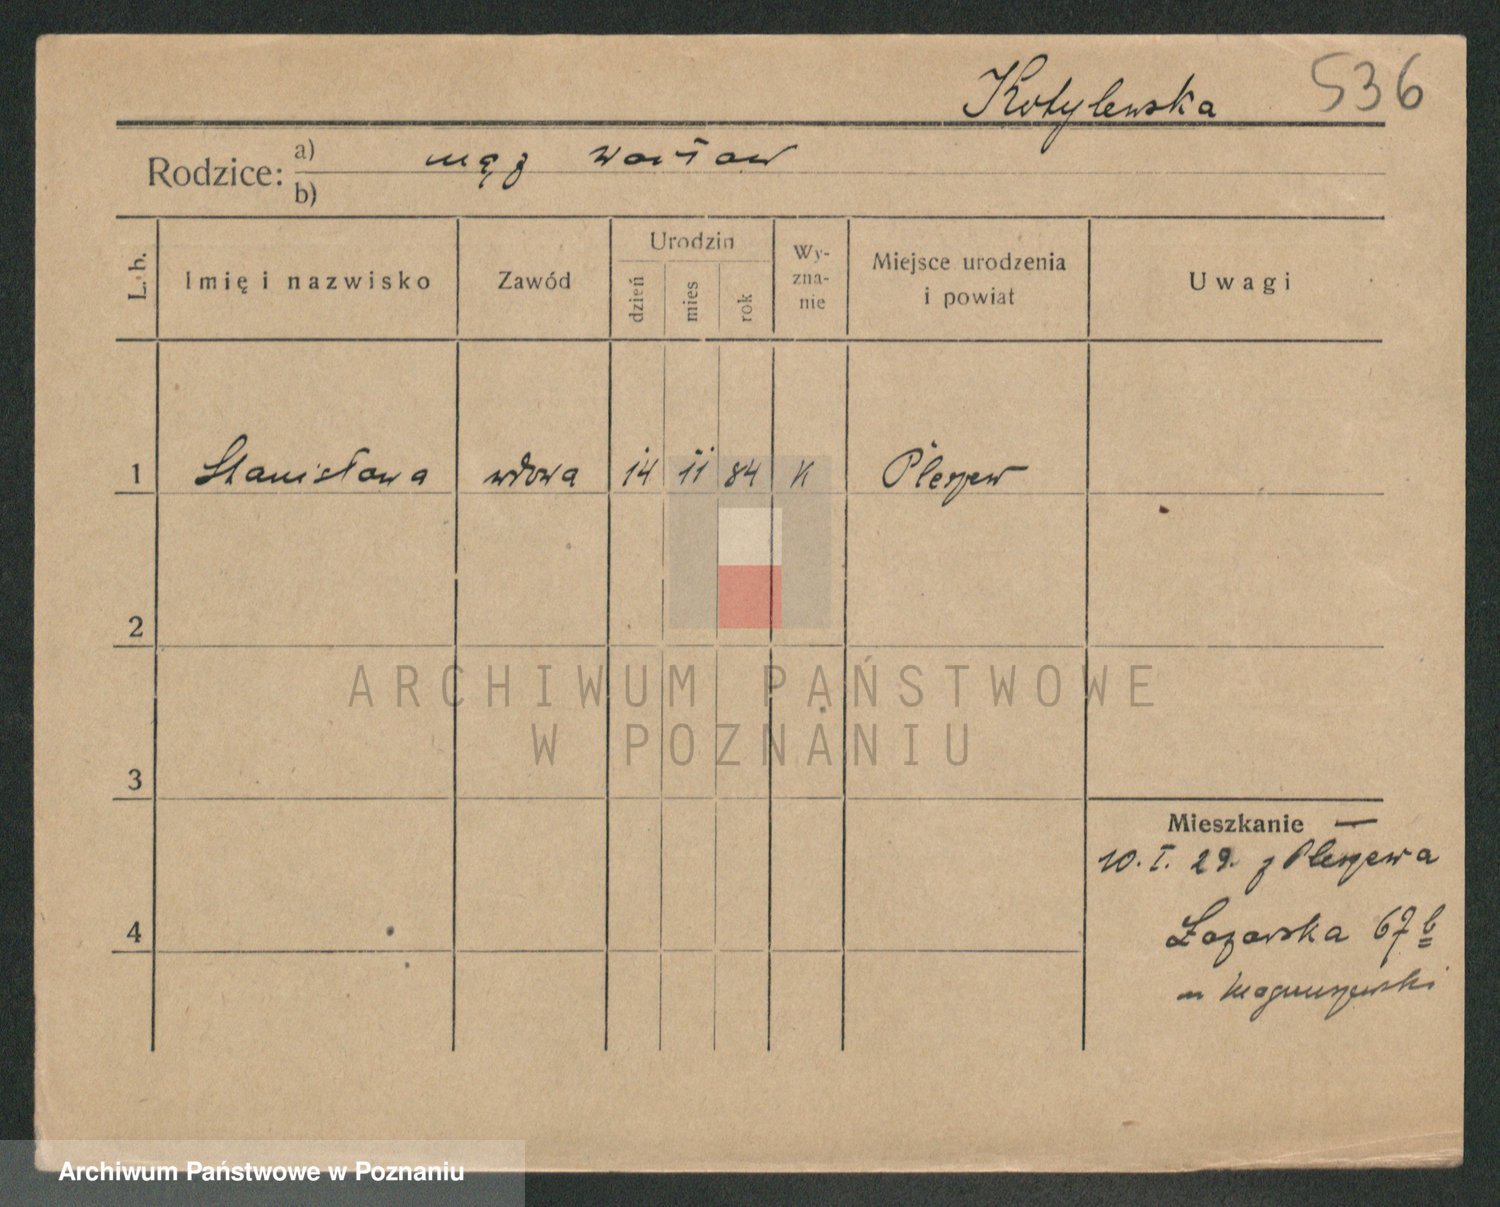 Kotylewska 536
Rodzice: a) mąż Wacław
b)
L. b. Imię i nazwisko Zawód Urodzin dzień mies rok Wy-zna-nie Miejsce urodzenia i powiat Uwagi
1 Stanisława wdowa 14 11 84 K Pleszew
2
ARCHIWUM PAŃSTWOWE
W POZNANIU
3
Mieszkanie —
10. I. 29. z Pleszewa
4
Łazarska 67 b
Archiwum Państwowe w Poznaniu